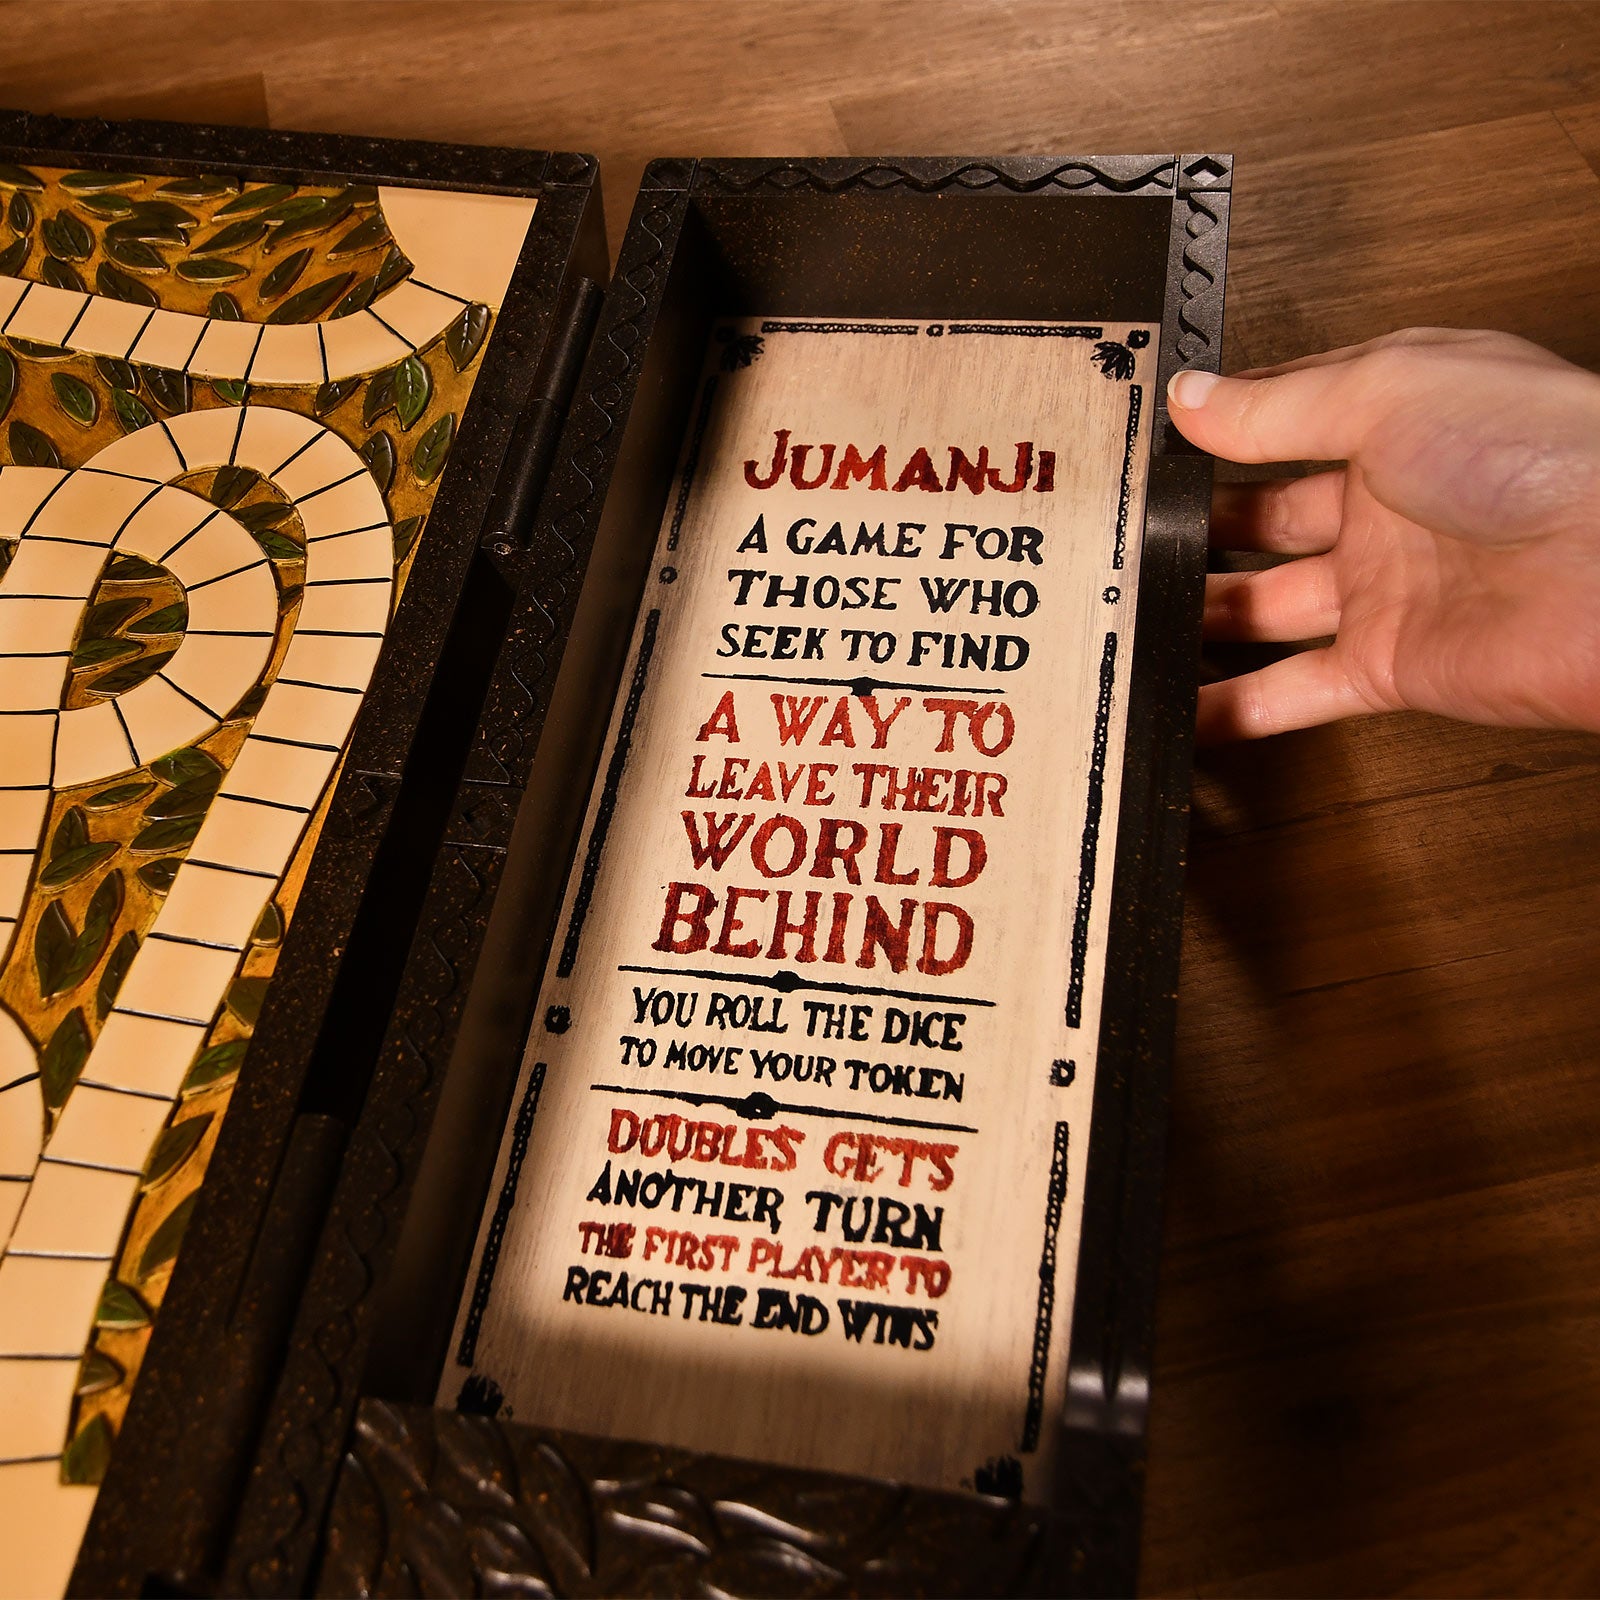 JUMANJI
A GAME FOR
THOSE WHO
SEEK TO FIND
A WAY TO
LEAVE THEIR
WORLD
BEHIND
YOU ROLL THE DICE
TO MOVE YOUR TOKEN
DOUBLES GETS
ANOTHER TURN
THE FIRST PLAYER TO
REACH THE END WINS